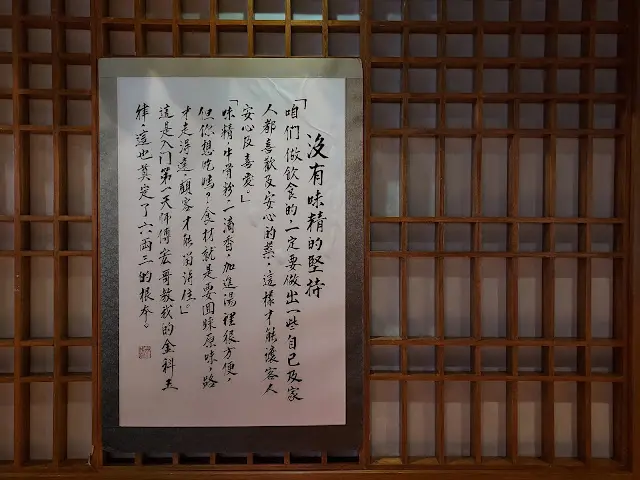 沒有味精的堅持
「咱們做飲食的，一定要做出一些自己及家
人都喜歡及安心的菜，這樣才能讓客人
安心及喜愛。」
「味精，牛骨粉，一滴香，加進湯裡很方便，
但你想吃嗎？食材就是要回歸原味，路
才走得遠，顧客才能留得住。」
這是入门第一天師傅宏哥教我的金科玉
律，這也奠定了六、兩三的根本。